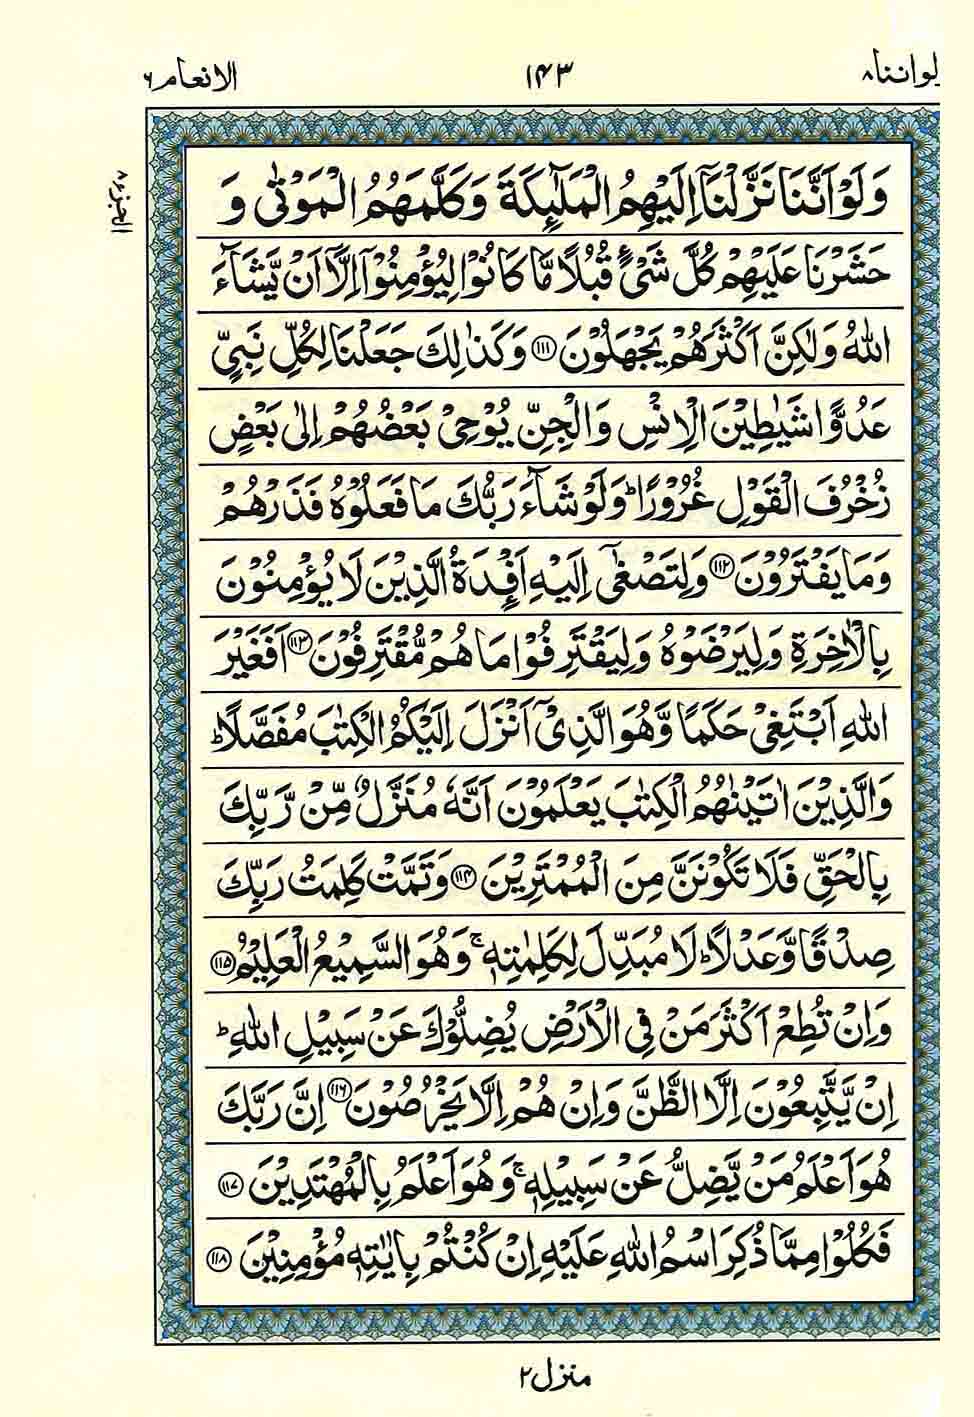 ولواننا۸
۱۴۳
الانعام۶
الجزء۸
وَلَوْ اَنَّنَا نَزَّلْنَاۤ اِلَیْهِمُ الْمَلٰٓىِٕكَةَ وَكَلَّمَهُمُ الْمَوْتٰی وَ
حَشَرْنَا عَلَیْهِمْ كُلَّ شَیْءٍ قُبُلًا مَّا كَانُوْا لِیُؤْمِنُوْۤا اِلَّاۤ اَنْ یَّشَآءَ
اللّٰهُ وَلٰكِنَّ اَكْثَرَهُمْ یَجْهَلُوْنَ ۝۱۱۱ وَكَذٰلِكَ جَعَلْنَا لِكُلِّ نَبِیٍّ
عَدُوًّا شَیٰطِیْنَ الْاِنْسِ وَالْجِنِّ یُوْحِیْ بَعْضُهُمْ اِلٰی بَعْضٍ
زُخْرُفَ الْقَوْلِ غُرُوْرًا ؕ وَلَوْ شَآءَ رَبُّكَ مَا فَعَلُوْهُ فَذَرْهُمْ
وَمَا یَفْتَرُوْنَ ۝۱۱۲ وَلِتَصْغٰۤی اِلَیْهِ اَفْـِٕدَةُ الَّذِیْنَ لَا یُؤْمِنُوْنَ
بِالْاٰخِرَةِ وَلِیَرْضَوْهُ وَلِیَقْتَرِفُوْا مَا هُمْ مُّقْتَرِفُوْنَ ۝۱۱۳ اَفَغَیْرَ
اللّٰهِ اَبْتَغِیْ حَكَمًا وَّهُوَ الَّذِیْۤ اَنْزَلَ اِلَیْكُمُ الْكِتٰبَ مُفَصَّلًا ؕ
وَالَّذِیْنَ اٰتَیْنٰهُمُ الْكِتٰبَ یَعْلَمُوْنَ اَنَّهٗ مُنَزَّلٌ مِّنْ رَّبِّكَ
بِالْحَقِّ فَلَا تَكُوْنَنَّ مِنَ الْمُمْتَرِیْنَ ۝۱۱۴ وَتَمَّتْ كَلِمَتُ رَبِّكَ
صِدْقًا وَّعَدْلًا ؕ لَا مُبَدِّلَ لِكَلِمٰتِهٖ ۚ وَهُوَ السَّمِیْعُ الْعَلِیْمُ ۝۱۱۵
وَاِنْ تُطِعْ اَكْثَرَ مَنْ فِی الْاَرْضِ یُضِلُّوْكَ عَنْ سَبِیْلِ اللّٰهِ ؕ
اِنْ یَّتَّبِعُوْنَ اِلَّا الظَّنَّ وَاِنْ هُمْ اِلَّا یَخْرُصُوْنَ ۝۱۱۶ اِنَّ رَبَّكَ
هُوَ اَعْلَمُ مَنْ یَّضِلُّ عَنْ سَبِیْلِهٖ ۚ وَهُوَ اَعْلَمُ بِالْمُهْتَدِیْنَ ۝۱۱۷
فَكُلُوْا مِمَّا ذُكِرَ اسْمُ اللّٰهِ عَلَیْهِ اِنْ كُنْتُمْ بِاٰیٰتِهٖ مُؤْمِنِیْنَ ۝۱۱۸
منزل۲